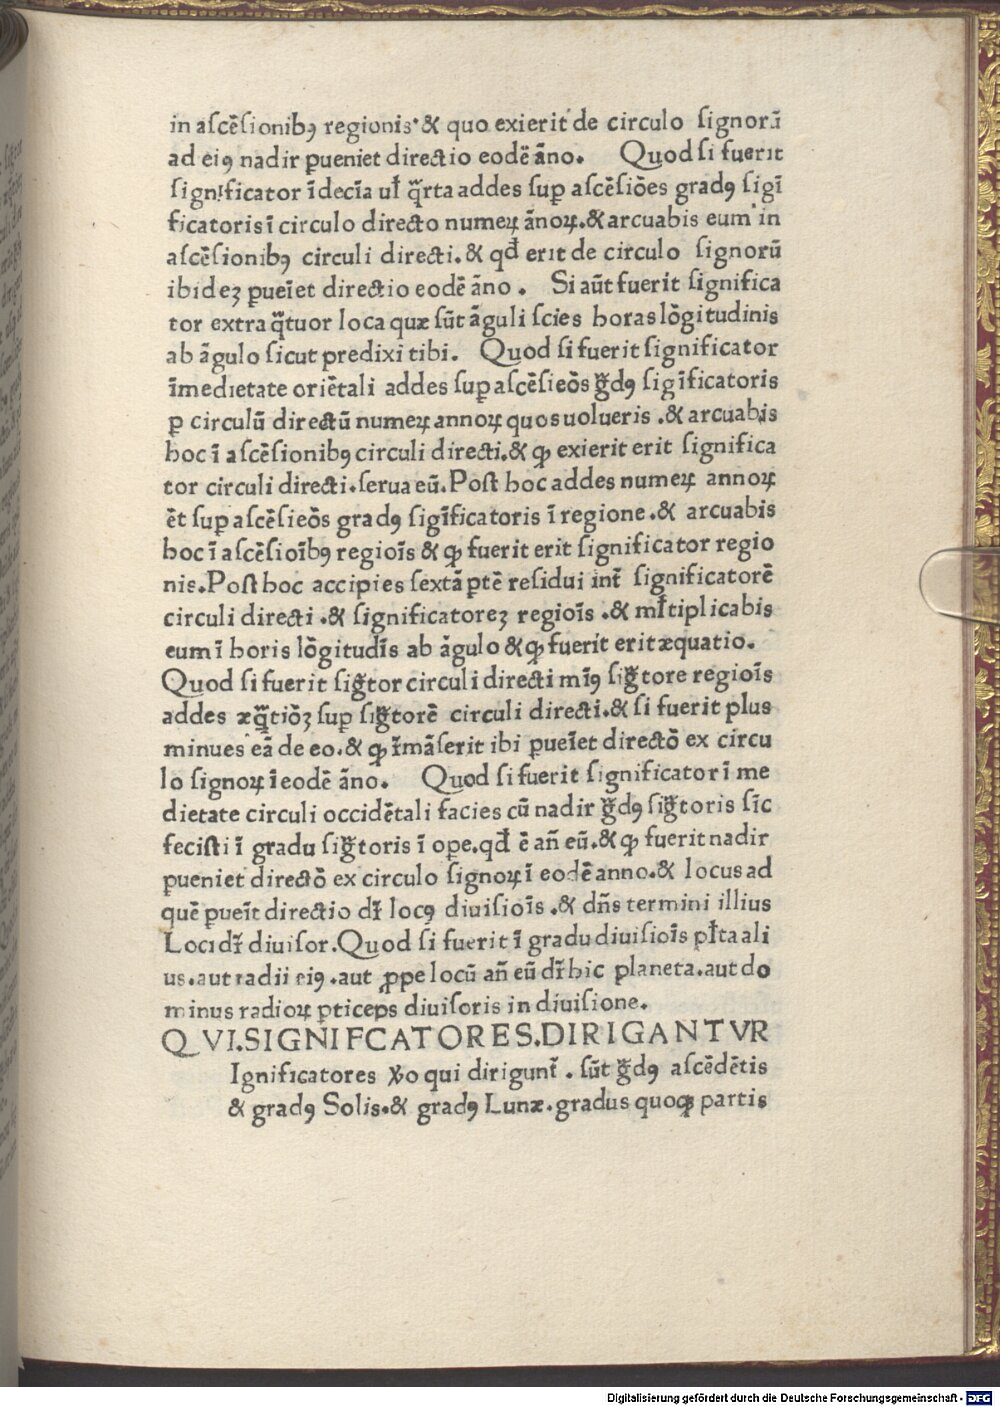 in aſcēſionibꝯ regionis·& quo exierit de circulo ſignorū
ad eiꝯ nadir ꝑueniet directio eodē āno. Quod ſi fuerit
ſignificator īdecīa ul̄ q̄rta addes ſuꝑ aſcēſiōes gradꝯ ſigī
ficatoris ī circulo directo numeꝝ ānoꝝ.& arcuabis eum in
aſcēſionibꝯ circuli directi.& qd̄ erit de circulo ſignorū
ibideꝫ ꝑueīet directio eodē āno. Si aūt fuerit ſignifica
tor extra q̄tuor loca quæ ſūt āguli ſcies horas lōgitudinis
ab āgulo ſicut predixi tibi. Quod ſi fuerit ſignificator
īmedietate oriētali addes ſuꝑ aſcēſieōs g̃dꝯ ſigīficatoris
ꝑ circulū directū numeꝝ annoꝝ quos uolueris.& arcuabis
hoc ī aſcēſionibꝯ circuli directi.& ꝙ exierit erit ſignifica
tor circuli directi.ſerua eū.Poſt hoc addes numeꝝ annoꝝ
ēt ſuꝑ aſcēſieōs gradꝯ ſigīficatoris ī regione.& arcuabis
hoc ī aſcēſioībꝯ regioīs & ꝙ fuerit erit ſignificator regio
nis.Poſt hoc accipies ſextā ꝑtē reſidui int̄ ſignificatorē
circuli directi.& ſignificatoreꝫ regioīs.& ml̄tiplicabis
eum ī horis lōgitudīs ab āgulo & ꝙ fuerit erit æquatio.
Quod ſi fuerit ſig̃tor circuli directi mīꝯ ſig̃tore regioīs
addes æq̄tiōꝫ ſuꝑ ſig̃torē circuli directi.& ſi fuerit plus
minues eā de eo.& ꝙ r̄māſerit ibi ꝑueīet directō ex circu
lo ſignoꝝ ī eodē āno. Quod ſi fuerit ſignificator ī me
dietate circuli occidētali facies cū nadir g̃dꝯ ſig̃toris ſīc
feciſti ī gradu ſig̃toris ī oꝑe.qd̄ ē an̄ eū.& ꝙ fuerit nadir
ꝑueniet directō ex circulo ſignoꝝ ī eodē anno.& locus ad
quē ꝑueīt directio dr̄ locꝯ diuiſioīs.& dn̄s termini illius
Loci dr̄ diuiſor.Quod ſi fuerit ī gradu diuiſioīs pl̄ta ali
us.aut radii eiꝯ.aut ꝓpe locū an̄ eū dr̄ hic planeta.aut do
minus radioꝝ ꝑticeps diuiſoris in diuiſione.
QVI.SIGNIFCATORES.DIRIGANTVR
Ignificatores ꟟o qui dirigunt̄. ſūt g̃dꝯ aſcēdētis
& gradꝯ Solis.& gradꝯ Lunæ.gradus quoqꝫ partis
Digitalisierung gefördert durch die Deutsche Forschungsgemeinschaft - DFG